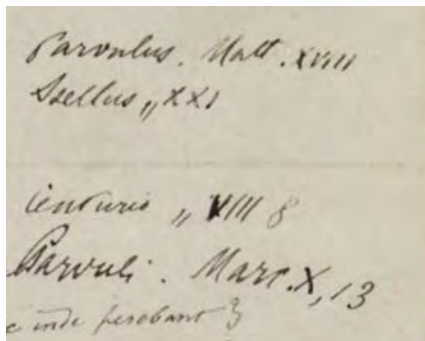 Parvulus. Matt. XVIII
Stellus „ XXI
Centurio „ VIII 8
Parvuli. Marc. X, 13
inde ferebant 3